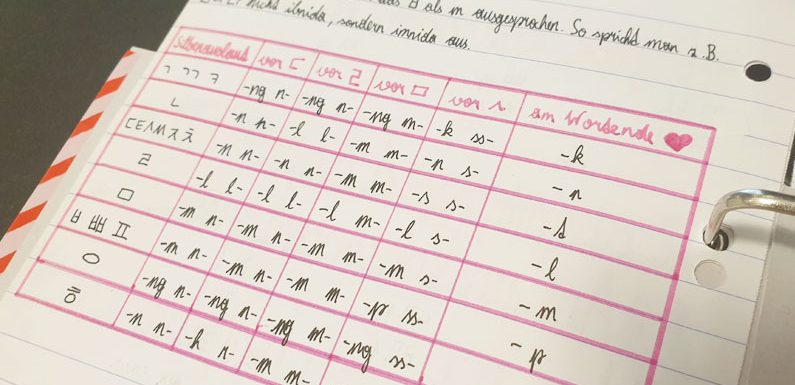 das ㅂ als m ausgesprochen. So spricht man z.B.
nicht ibnida, sondern imnida aus.
Silbenauslaut vor ㄷ vor ㄹ vor ㅁ vor ㅅ am Wortende
ㄱ ㄲ ㅋ -ng n- -ng n- -ng m- -k ss- -k
ㄴ -n n- -l l- -m m- -n s- -n
ㄷㅌㅅㅆㅈㅊ -n n- -n n- -m m- -s s- -t
ㄹ -l l- -l l- -l m- -l s- -l
ㅁ -m n- -m n- -m m- -m s- -m
ㅂ ㅃ ㅍ -m n- -m n- -m m- -p ss- -p
ㅇ -ng n- -ng n- -ng m- -ng ss-
ㅎ -n n- -h n- -m m-